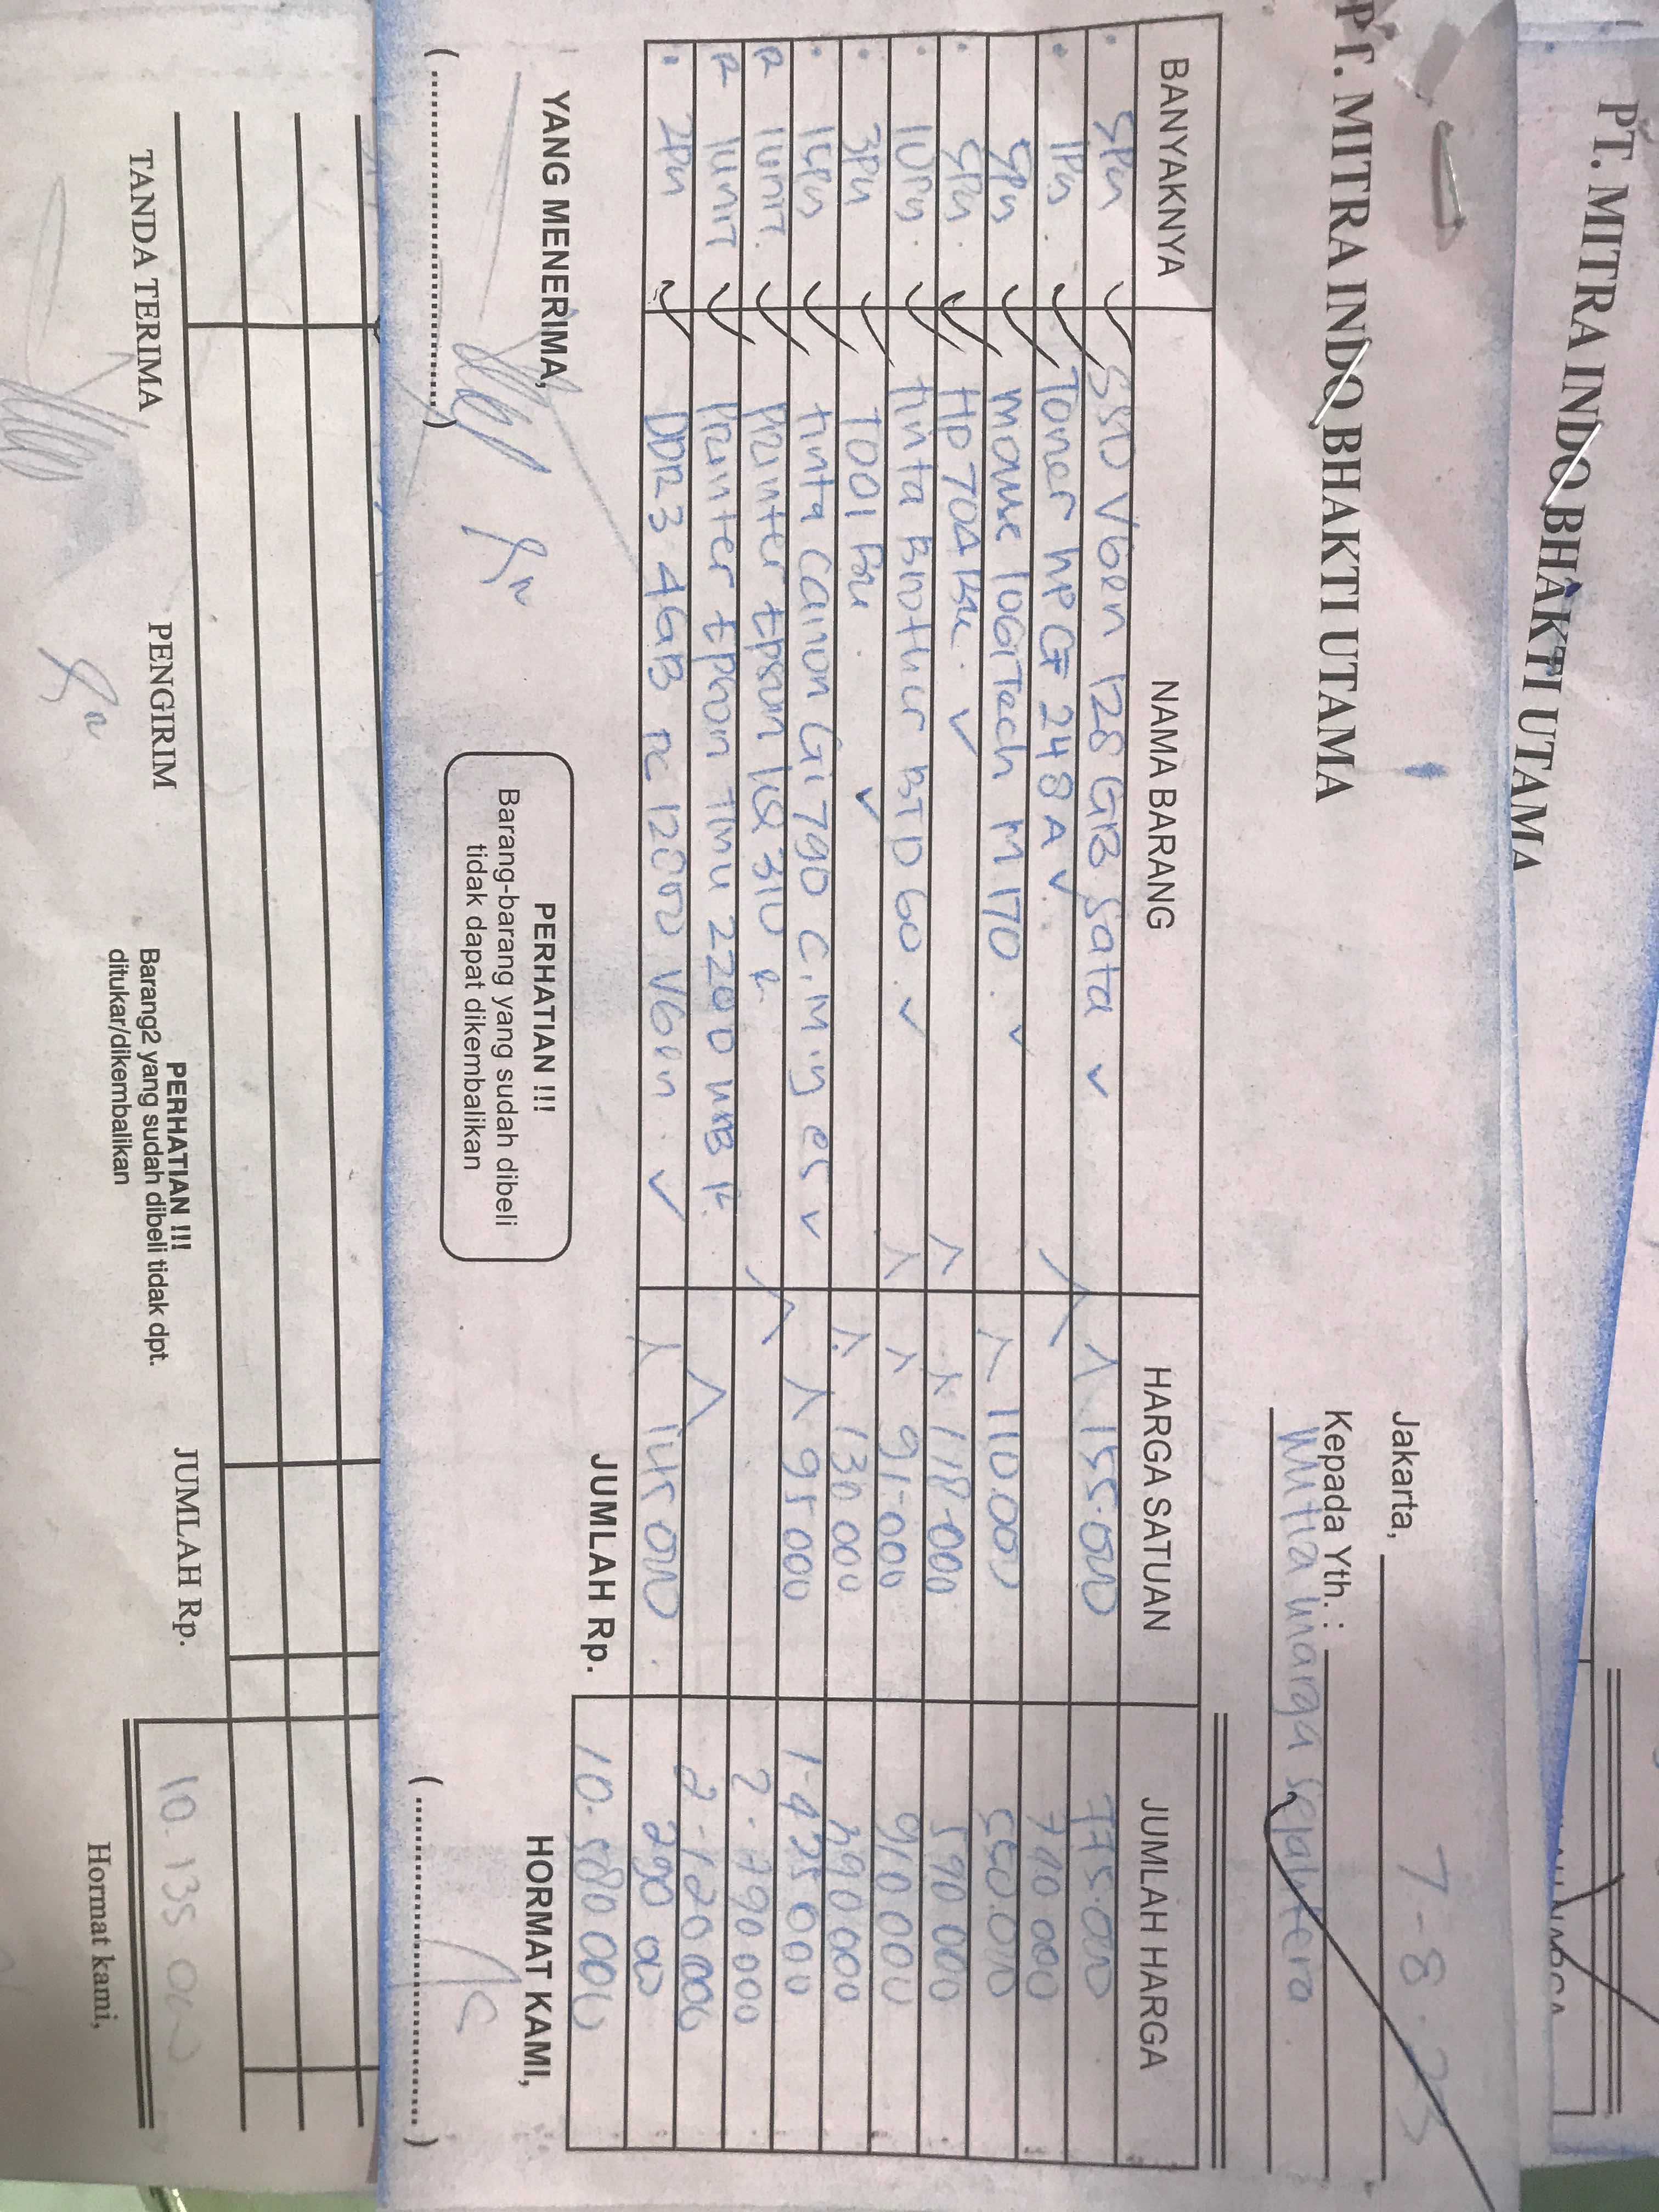 PT. MITRA INDO BHAKTI UTAMA
PT. MITRA INDO BHAKTI UTAMA
Jakarta, 7-8-23
Kepada Yth. :
Mutia Sejahtera
BANYAKNYA NAMA BARANG HARGA SATUAN JUMLAH HARGA
5 Pcs SSD VGen 128 GB Sata 155.000 775.000
1 Pcs Toner HP CF 248A 740 000
5 Pcs Mouse logiTech M170 110.000 550.000
5 Pcs HP 704 118.000 590 000
10 Pcs Tinta Brother BTD 60 91.000 910 000
3 Pcs T001 130 000 390 000
15 Pcs Tinta Canon Gi 790 C, M, y 95 000 1.425 000
1 unit Printer Epson LQ 310 2.790 000
1 unit Printer Epson TMU 220D USB 2.120 000
2 Pcs DDR3 4GB PC 12800 VGen 145 000 290 000
JUMLAH Rp. 10.580 000
YANG MENERIMA,
PERHATIAN !!!
Barang-barang yang sudah dibeli
tidak dapat dikembalikan
HORMAT KAMI,
TANDA TERIMA PENGIRIM
PERHATIAN !!!
Barang2 yang sudah dibeli tidak dpt.
ditukar/dikembalikan
JUMLAH Rp. 10.135 000
Hormat kami,